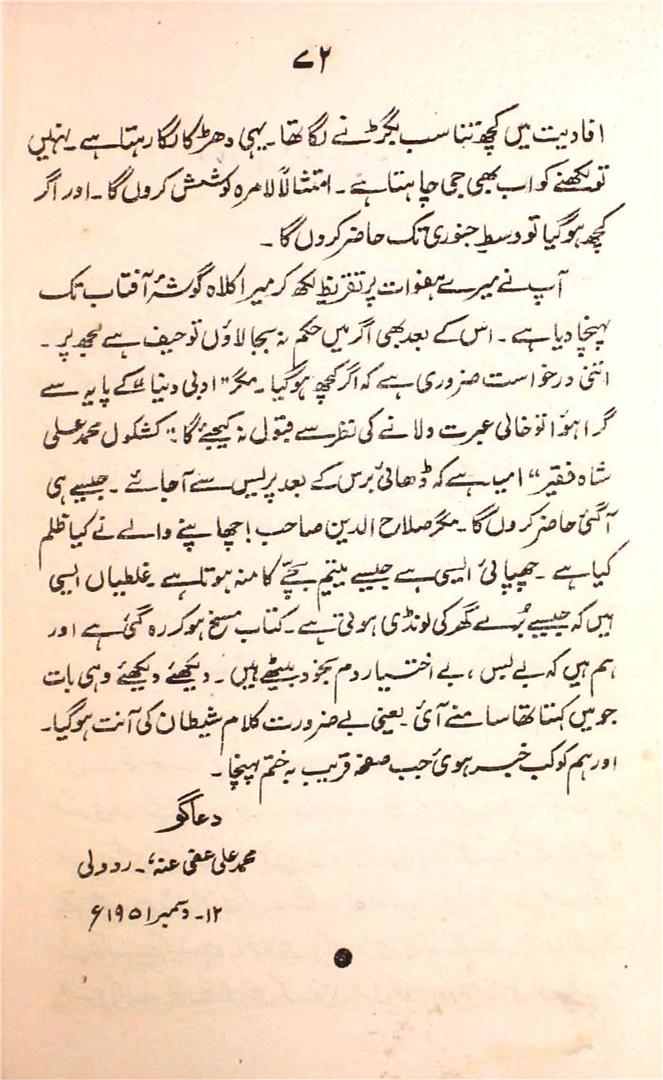 ۷۲
افادیت میں کچھ تناسب بگڑنے لگا تھا۔ یہی دھڑکا لگا رہتا ہے۔ نہیں
تو لکھنے کو اب بھی جی چاہتا ہے۔ امتثالاً لامرہ کوشش کروں گا۔ اور اگر
کچھ ہو گیا تو وسطِ جنوری تک حاضر کروں گا۔
آپ نے میرے ہفوات پر تقریظ لکھ کر میرا کلاہ گوشۂ آفتاب تک
پہنچا دیا ہے۔ اس کے بعد بھی اگر میں حکم نہ بجا لاؤں تو حیف ہے مجھ پر۔
اتنی درخواست ضروری ہے کہ اگر کچھ ہو گیا۔ مگر "ادبی دنیا" کے پایہ سے
گرا ہوا تو خالی عبرت دلانے کی نظر سے قبول نہ کیجئے گا: "کشکول محمد علی
شاہ فقیر" امید ہے کہ ڈھائی برس کے بعد پریس سے آ جائے۔ جیسے ہی
آ گئی حاضر کروں گا۔ مگر صلاح الدین صاحب! چھاپنے والے نے کیا ظلم
کیا ہے۔ چھپائی ایسی ہے جیسے یتیم بچّے کا منہ ہوتا ہے۔ غلطیاں ایسی
ہیں کہ جیسے بُرے گھر کی لونڈی ہوتی ہے۔ کتاب مسخ ہو کر رہ گئی ہے اور
ہم ہیں کہ بے بس، بے اختیار دم بخود بیٹھے ہیں۔ دیکھئے دیکھئے وہی بات
جو میں کہتا تھا سامنے آئی۔ یعنی بے ضرورت کلام شیطان کی آنت ہو گیا۔
اور ہم کو کب خبر ہوئی جب صفحہ قریب بہ ختم پہنچا۔
دعاگو
محمد علی عفی عنہ، ۔ ردولی
۱۲۔ دسمبر ۱۹۵۱ء